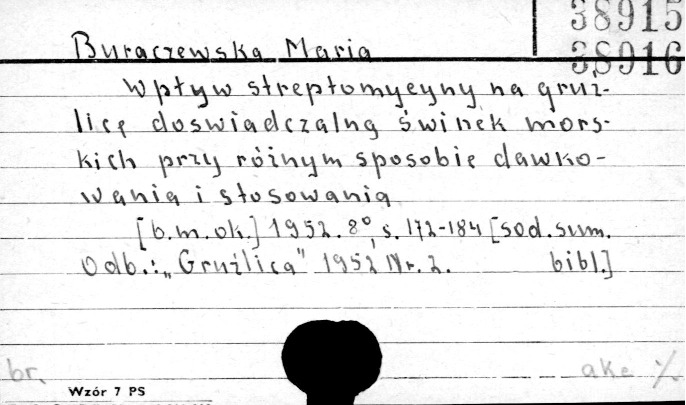 38915
Buraczewska Maria
38916
Wpływ streptomycyny na gruź-
licę doswiadczalną świnek mors-
kich przy różnym sposobie dawko-
wania i stosowania
[b.m.ok.] 1952. 8° s. 172-184 [sod. sum.
Odb.: „Gruźlica" 1952 Nr. 2. bibl.]
br.
akc %
Wzór 7 PS